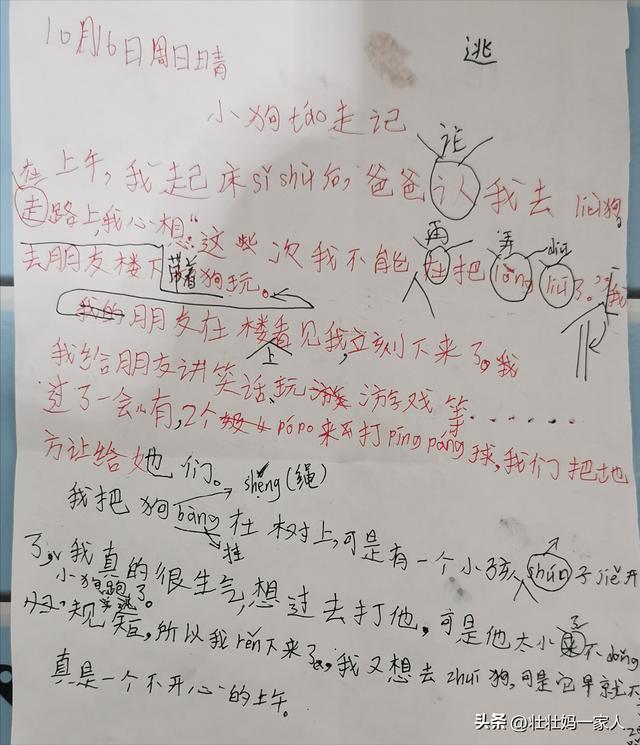 10月16日周日晴
逃
小狗táo走记
让
在上午,我起床sǐ shù后,爸爸认我去liū狗,
走路上,我心想“这些次我不能在把lòng liū了。”我
再 弄 diū
去朋友楼下带着狗玩。
朋友在楼看见我,立刻下来了。我
上
我给朋友讲笑话、玩游戏等......
过了一会有,2个pópo来打pīng pāng球,我们把地
方让给她们。
shéng(绳)
我把狗bǎng在树上,可是有一个小孩shún子jiě开
拴
了,我真的很生气,想过去打他,可是他太小了不dǒng
小狗跑了。
规矩,所以我rěn下来了,我又想去zhuī狗,可是它早就
真是一个不开心的上午。
头条@壮壮妈一家人